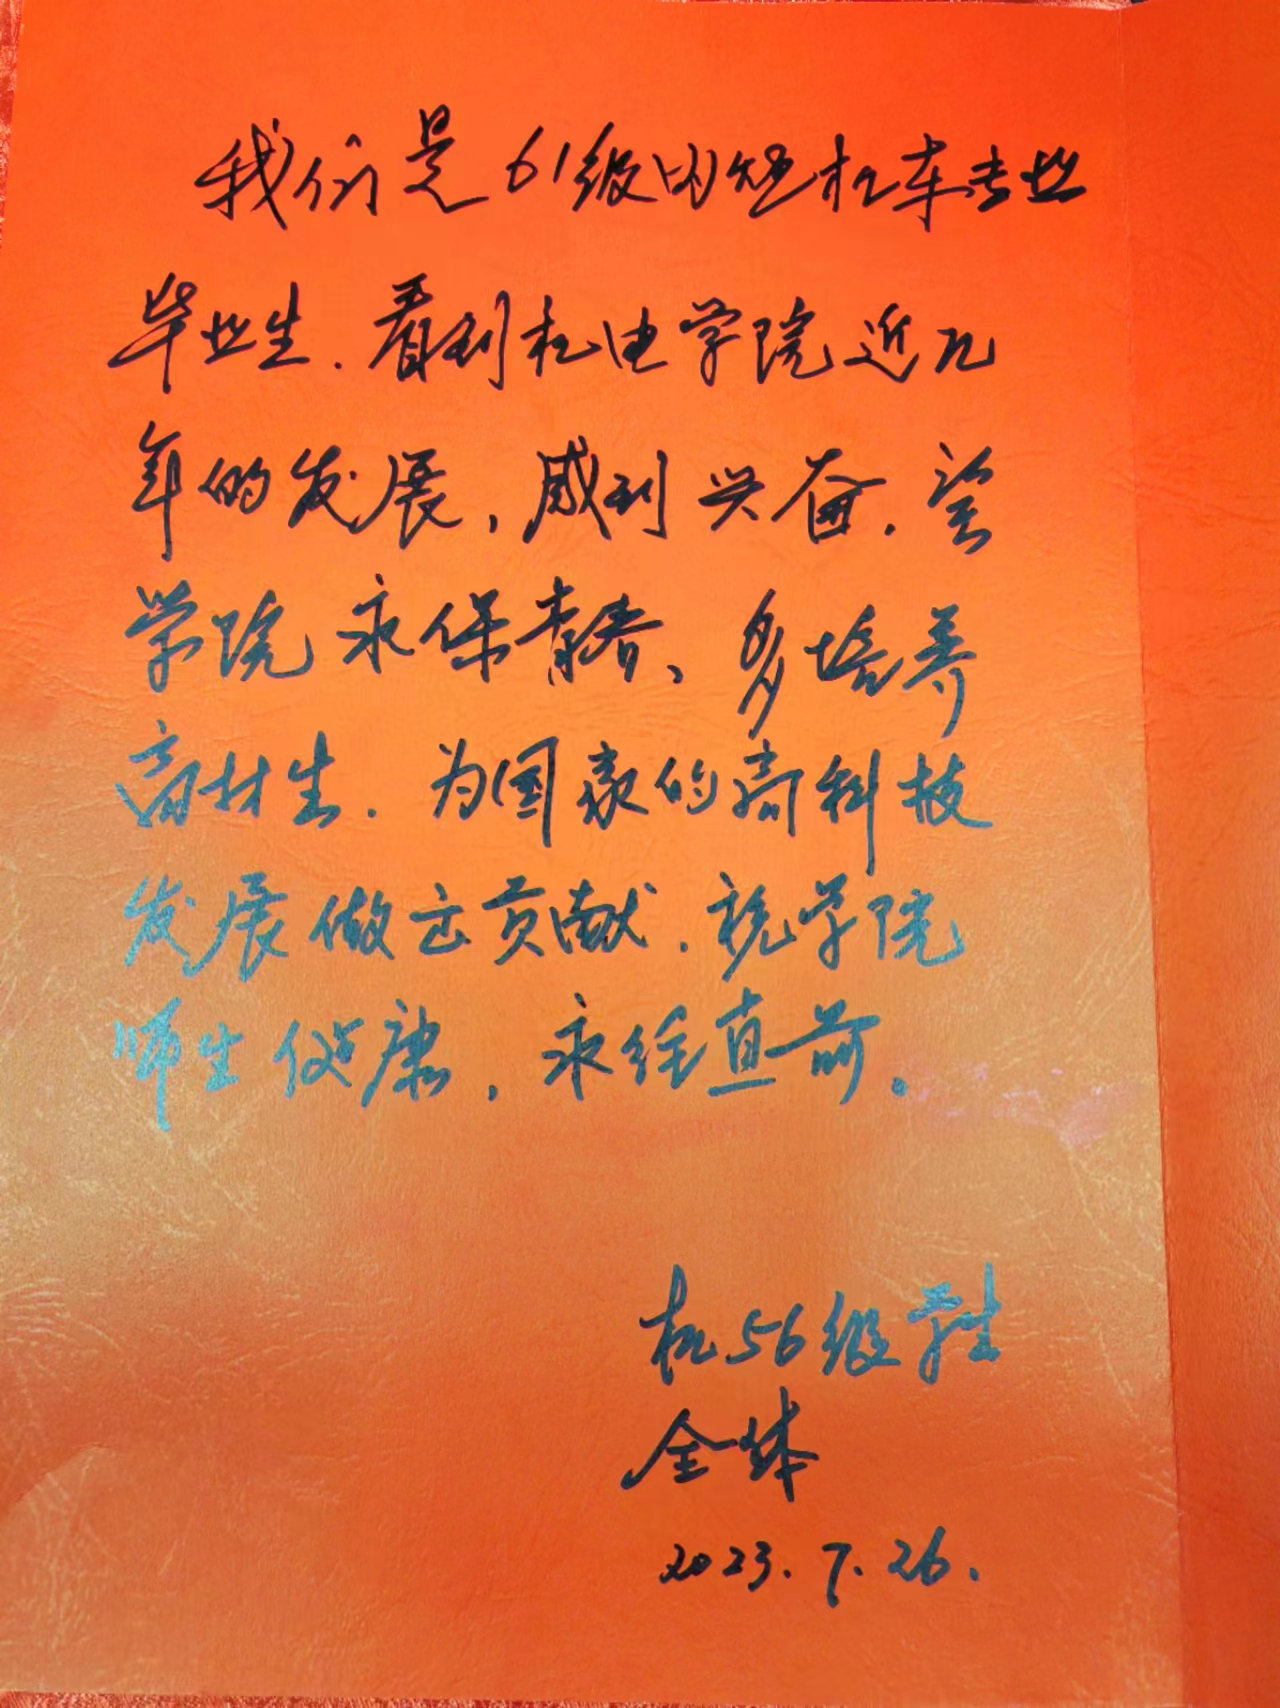 我们是61级内燃机车专业
毕业生.看到机电学院近几
年的发展,感到兴奋.望
学院永保青春、多培养
高材生.为国家的高科技
发展做出贡献.祝学院
师生健康,永往直前.
机56级学生
全体
2023.7.26.